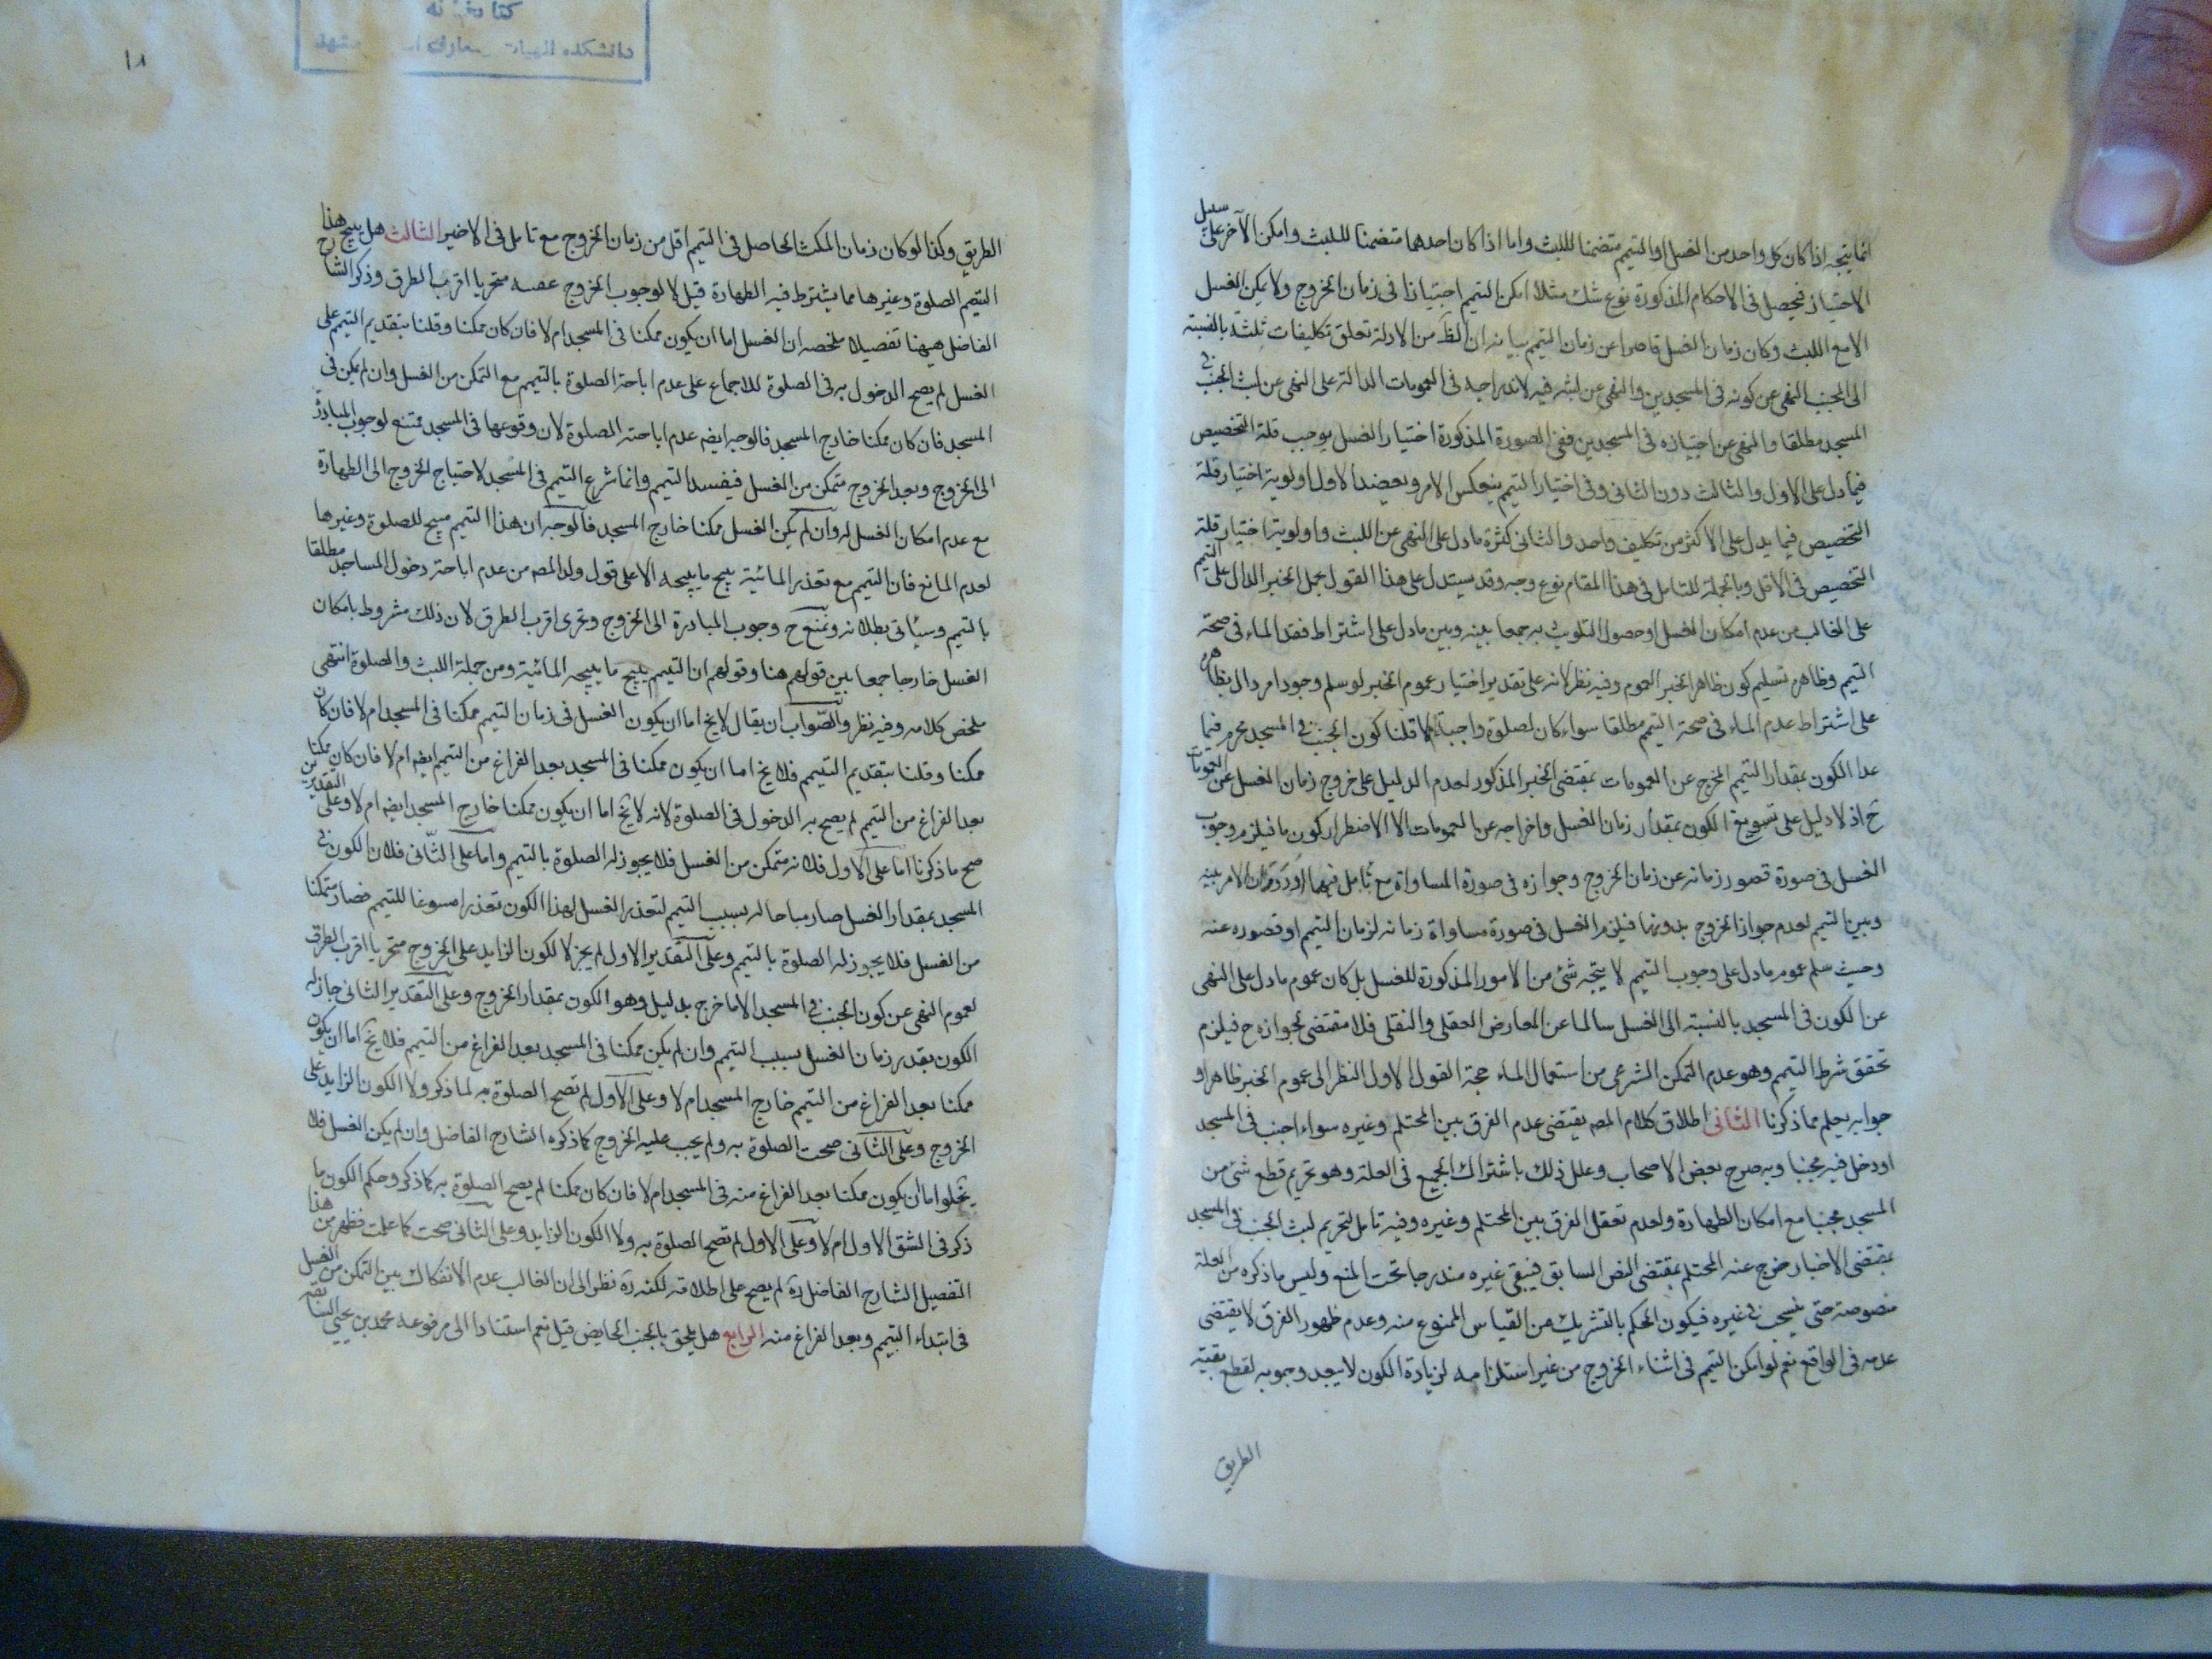 انما يتجه اذا كان كل واحد من الغسل او التيمم متضمنا لللبث واما اذا كان احدهما متضمنا لللبث وامكن الآخر على سبيل
الاجتياز فيحصل في الاحكام المذكورة نوع شك مثلا امكن التيمم اجتيازا في زمان الخروج ولا يمكن الغسل
الا مع اللبث وكان زمان الغسل قاصرا عن زمان التيمم بيانه ان الظ من الادلة تعلق تكليفات ثلثة بالنسبة
الى الجنب النهي عن كونه في المسجدين والنهي عن لبثه فيه لاندراجه في العمومات الدالة على النهي عن لبث الجنب في
المسجد مطلقا والنهي عن اجتيازه في المسجدين ففي الصورة المذكورة اختيار الغسل يوجب قلة التخصيص
فيما دل على الاول والثالث دون الثاني وفي اختيار التيمم ينعكس الامر ويعضد الاول اولوية اختيار قلة
التخصيص فيما يدل على الاكثر من تكليف واحد والثاني كثرة ما دل على النهي عن اللبث واولوية اختيار قلة
التخصيص في الاقل وبالجملة للتامل في هذا المقام نوع وجه وقد يستدل على هذا القول بحمل الخبر الدال على التيمم
على الغالب من عدم امكان الغسل او حصول التلويث به جمعا بينه وبين ما دل على اشتراط فقد الماء في صحة
التيمم وظاهره تسليم كون ظاهر الخبر العموم وفيه نظر لانه على تقدير اختيار عموم الخبر لو سلم وجود امر دال بظاهره
على اشتراط عدم الماء في صحة التيمم مطلقا سواء كان لصلوة واجبة قلنا كون الجنب في المسجد محرم فيما
عدا الكون بمقدار التيمم المخرج عن العمومات بمقتضى الخبر المذكور لعدم الدليل على خروج زمان الغسل عن العمومات
ح اذ لا دليل على تسويغ الكون بمقدار زمان الغسل واخراجه عن العمومات الا الاضطرار كون ما فيلزم وجوب
الغسل في صورة قصور زمانه عن زمان الخروج وجوازه في صورة المساواة مع تامل فيهما الامر بينه
وبين التيمم لعدم جواز الخروج بدونهما فيلزم الغسل في صورة مساواة زمانه لزمان التيمم او قصوره عنه
وحيث سلم عموم ما دل على وجوب التيمم لا يتجه شئ من الامور المذكورة للغسل بل كان عموم ما دل على النهي
عن الكون في المسجد بالنسبة الى الغسل سالما عن المعارض العقلي والنقلي فلا مقتضى لجوازه ح فيلزم
تحقق شرط التيمم وهو عدم التمكن الشرعي من استعمال الماء حجة القول الاول النظر الى عموم الخبر ظاهرا و
جوابه يعلم مما ذكرنا الثاني اطلاق كلام المص يقتضى عدم الفرق بين المحتلم وغيره سواء اجنب في المسجد
او دخل فيه مجنبا وبه صرح بعض الاصحاب وعلل ذلك باشتراك الجميع في العلة وهو تحريم قطع شئ من
المسجد مجنبا مع امكان الطهارة ولعدم تعقل الفرق بين المحتلم وغيره وفيه تامل لتحريم لبث الجنب في المسجد
بمقتضى الاخبار خرج عنه المحتلم بمقتضى النص السابق فيبقى غيره مندرجا تحت المنع وليس ما ذكره من العلة
منصوصة حتى ينسحب في غيره فيكون الحكم بالتشريك من القياس الممنوع منه وعدم ظهور الفرق لا يقتضى
عدمه في الواقع نعم لو امكن التيمم في اثناء الخروج من غير استلزامه لزيادة الكون لا يبعد وجوبه لقطع بقية
الطريق
١٨
الطريق وكذا لو كان زمان المكث الحاصل في التيمم اقل من زمان الخروج مع تامل في الاخير الثالث هل يبيح هذا
التيمم الصلوة وغيرها مما يشترط فيه الطهارة قيل لا لوجوب الخروج عقيبه متحريا اقرب الطرق وذكر الشارح
الفاضل هيهنا تفصيلا ملخصه ان الغسل اما ان يكون ممكنا في المسجد ام لا فان كان ممكنا وقلنا بتقديم التيمم على
الغسل لم يصح الدخول به في الصلوة للاجماع على عدم اباحة الصلوة بالتيمم مع التمكن من الغسل وان لم يمكن في
المسجد فان كان ممكنا خارج المسجد فالوجه ايضه عدم اباحته الصلوة لان وقوعها في المسجد ممتنع لوجوب المبادرة
الى الخروج وبعد الخروج متمكن من الغسل فيفسد التيمم وانما شرع التيمم في المسجد لاحتياج الخروج الى الطهارة
مع عدم امكان الغسل له وان لم يكن الغسل ممكنا خارج المسجد فالوجه ان هذا التيمم مبيح للصلوة وغيرها
لعدم المانع فان التيمم مع تعذر المائية يبيح ما يبيحه الا على قول ولد المص من عدم اباحته دخول المساجد مطلقا
بالتيمم وسيأتي بطلانه ويمنع ح وجوب المبادرة الى الخروج وتحرى اقرب الطرق لان ذلك مشروط بامكان
الغسل خارجا جمعا بين قولهم هنا وقولهم ان التيمم يبيح ما يبيحه المائية ومن جملة اللبث والصلوة انتهى
ملخص كلامه وفيه نظر والصواب ان يقال لا يخ اما ان يكون الغسل في زمان التيمم ممكنا في المسجد ام لا فان كان
ممكنا وقلنا بتقديم التيمم فلا يخ اما ان يكون ممكنا في المسجد بعد الفراغ من التيمم ايضه ام لا فان كان ممكنا
بعد الفراغ من التيمم لم يصح به الدخول في الصلوة لانه لا يخ اما ان يكون ممكنا خارج المسجد ايضه ام لا وعلى التقديرين
صح ما ذكرنا اما على الاول فلانه متمكن من الغسل فلا يجوز له الصلوة بالتيمم واما على الثاني فلان الكون في
المسجد بمقدار الغسل صار مباحا له بسبب التيمم لتعذر الغسل لهذا الكون تعذرا مسوغا للتيمم فصار متمكنا
من الغسل فلا يجوز له الصلوة بالتيمم وعلى التقدير الاول لم يجز لا لكون الزايد على الخروج متحريا اقرب الطرق
لعموم النهي عن كون الجنب في المسجد الا ما خرج بدليل وهو الكون بمقدار الخروج وعلى التقدير الثاني جاز له
الكون بقدر زمان الغسل بسبب التيمم وان لم يكن ممكنا في المسجد بعد الفراغ من التيمم فلا يخ اما ان يكون
ممكنا بعد الفراغ من التيمم خارج المسجد ام لا وعلى الاول لم تصح الصلوة به لما ذكر ولا الكون الزايد على
الخروج وعلى الثاني صحت الصلوة به ولم يجب عليه الخروج كما ذكره الشارح الفاضل وان لم يكن الغسل فلا
يخلوا اما ان يكون ممكنا بعد الفراغ منه في المسجد ام لا فان كان ممكنا لم يصح الصلوة به كما ذكر وحكم الكون ما
ذكر في الشق الاول ام لا وعلى الاول لم تصح الصلوة به ولا الكون الزايد وعلى الثاني صحت كما علمت فظهر من هذا
التفصيل الشارح الفاضل ره لم يصح على اطلاقه لكنه ره نظر الى ان الغالب عدم الانفكاك بين التمكن من الغسل
في ابتداء التيمم وبعد الفراغ منه الرابع هل يلحق بالجنب الحايض قيل نعم استنادا الى مرفوعه محمد بن يحيى السابقه